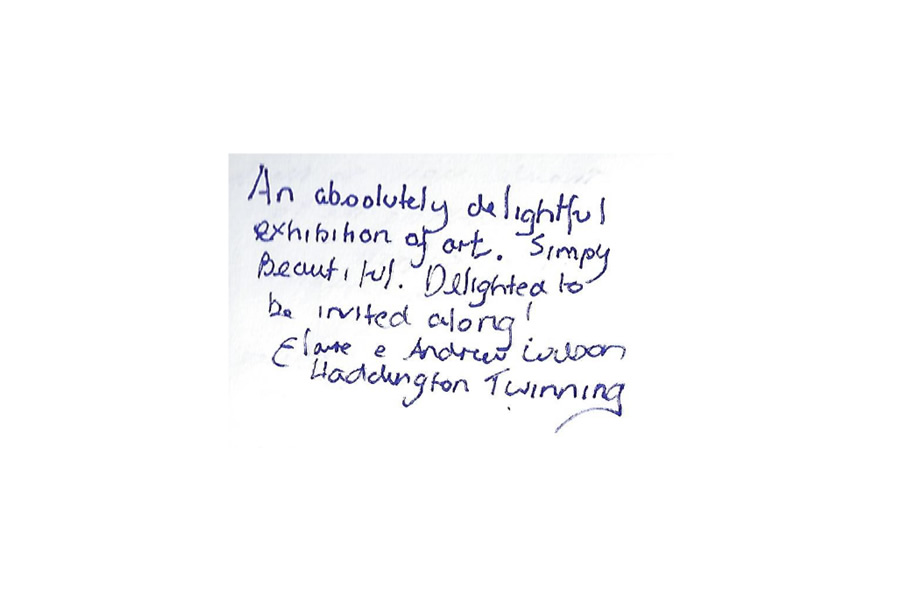 An absolutely delightful
exhibition of art. Simpy
Beautiful. Delighted to
be invited along!
Elaine e Andrew Wilson
Haddington Twinning